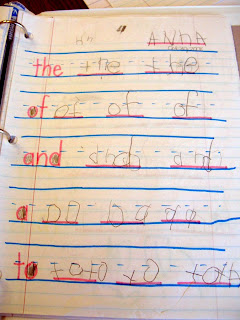 ANNA
the the the
of of of of
and and and
a a a a a a a
to to to to to to